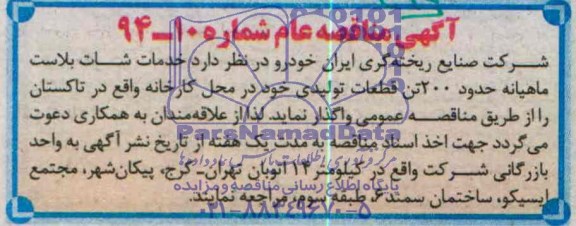 آگهی مناقصه عام شماره ۱۰-۹۴
شرکت صنایع ریخته‌گری ایران خودرو در نظر دارد خدمات شات بلاست
ماهیانه حدود ۲۰۰ تن قطعات تولیدی خود در محل کارخانه واقع در تاکستان
را از طریق مناقصه عمومی واگذار نماید. لذا از علاقه‌مندان به همکاری دعوت
می‌گردد جهت اخذ اسناد مناقصه به مدت یک هفته از تاریخ نشر آگهی به واحد
بازرگانی شرکت واقع در کیلومتر ۱۴ اتوبان تهران-کرج، پیکان‌شهر، مجتمع
ایسیکو، ساختمان سمند ۶، طبقه سوم، مراجعه نمایند.
ParsNamadData
پایگاه اطلاع رسانی مناقصه و مزایده
۰۲۱-۸۸۳۴۹۶۷۰-۵